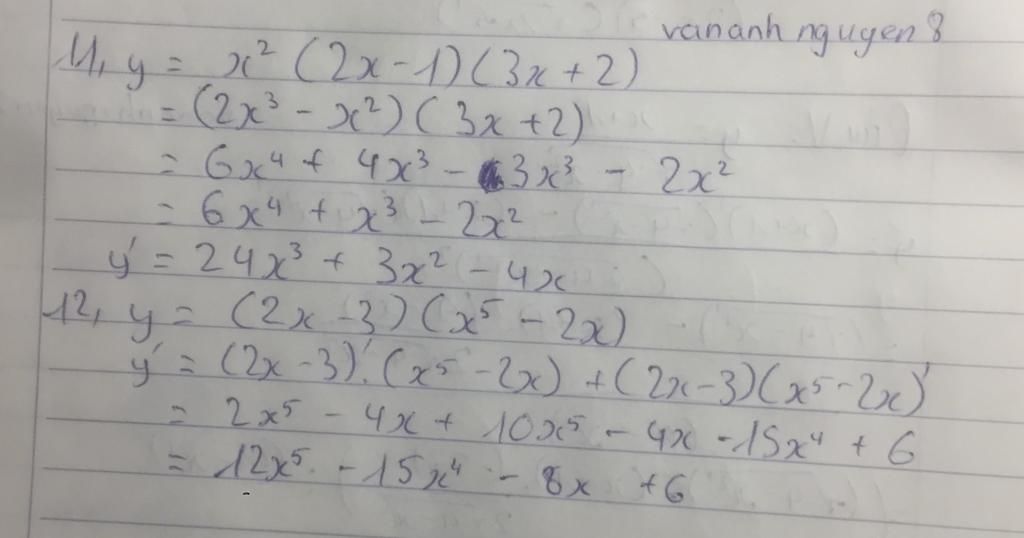 vananh nguyen 8
11, y = x² (2x - 1)(3x + 2)
= (2x³ - x²)(3x + 2)
= 6x⁴ + 4x³ - 3x³ - 2x²
= 6x⁴ + x³ - 2x²
y' = 24x³ + 3x² - 4x
12, y = (2x - 3)(x⁵ - 2x)
y' = (2x - 3)'.(x⁵ - 2x) + (2x - 3)(x⁵ - 2x)'
= 2x⁵ - 4x + 10x⁵ - 4x - 15x⁴ + 6
= 12x⁵ - 15x⁴ - 8x + 6